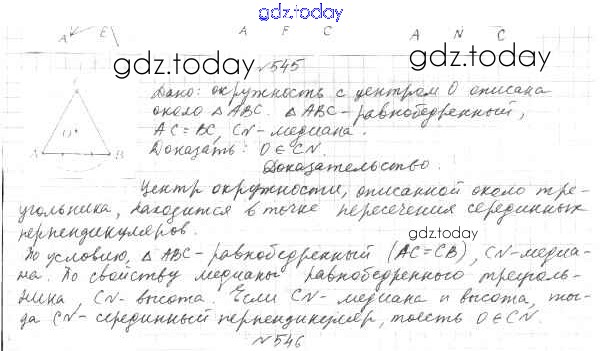 gdz.today
A E A F C A N C
gdz.today gdz.today
№545
Дано: окружность с центром O описана
около △ABC. △ABC-равнобедренный,
AC=BC, CN-медиана.
Доказать: O∈CN.
O
A B
Доказательство.
Центр окружности, описанной около тре-
угольника, находится в точке пересечения серединных
перпендикуляров.
gdz.today
По условию, △ABC-равнобедренный (AC=CB), CN-медиа-
на. По свойству медианы равнобедренного треуголь-
ника, CN-высота. Если CN-медиана и высота, то-
да CN-серединный перпендикуляр, тоесть O∈CN.
№546